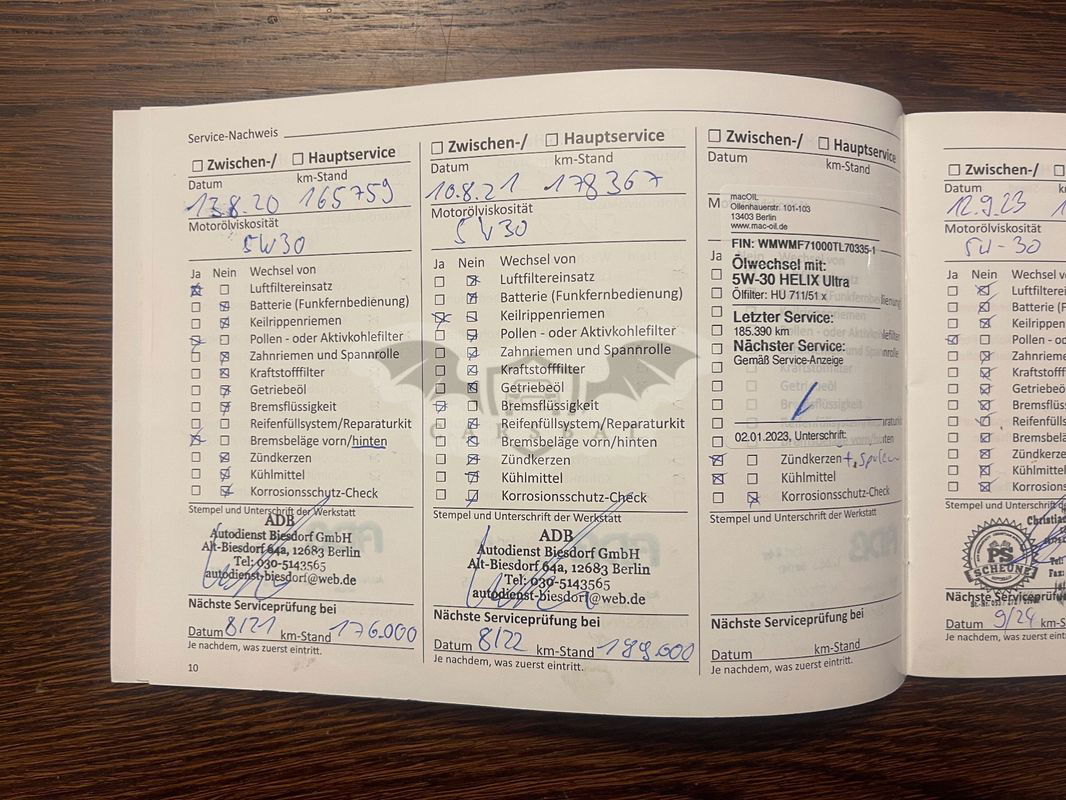 Service-Nachweis
☐ Zwischen-/ ☐ Hauptservice
Datum km-Stand
13.8.20 165759
Motorölviskosität
5W30
Ja Nein Wechsel von
Luftfiltereinsatz
Batterie (Funkfernbedienung)
Keilrippenriemen
Pollen - oder Aktivkohlefilter
Zahnriemen und Spannrolle
Kraftstofffilter
Getriebeöl
Bremsflüssigkeit
Reifenfüllsystem/Reparaturkit
Bremsbeläge vorn/hinten
Zündkerzen
Kühlmittel
Korrosionsschutz-Check
Stempel und Unterschrift der Werkstatt
ADB
Autodienst Biesdorf GmbH
Alt-Biesdorf 64a, 12683 Berlin
Tel: 030-5143565
autodienst-biesdorf@web.de
Nächste Serviceprüfung bei
Datum 8/21 km-Stand 176.000
Je nachdem, was zuerst eintritt.
10
☐ Zwischen-/ ☐ Hauptservice
Datum km-Stand
10.8.21 178367
Motorölviskosität
5W30
Ja Nein Wechsel von
Luftfiltereinsatz
Batterie (Funkfernbedienung)
Keilrippenriemen
Pollen - oder Aktivkohlefilter
Zahnriemen und Spannrolle
Kraftstofffilter
Getriebeöl
Bremsflüssigkeit
Reifenfüllsystem/Reparaturkit
Bremsbeläge vorn/hinten
Zündkerzen
Kühlmittel
Korrosionsschutz-Check
Stempel und Unterschrift der Werkstatt
ADB
Autodienst Biesdorf GmbH
Alt-Biesdorf 64a, 12683 Berlin
Tel: 030-5143565
autodienst-biesdorf@web.de
Nächste Serviceprüfung bei
Datum 8/22 km-Stand 199.000
Je nachdem, was zuerst eintritt.
CARSBAT
☐ Zwischen-/ ☐ Hauptservice
Datum km-Stand
macOIL
Ollenhauerstr. 101-103
13403 Berlin
www.mac-oil.de
FIN: WMWMF71000TL70335-1
Ja
Ölwechsel mit:
5W-30 HELIX Ultra
Ölfilter: HU 711/51 x
Letzter Service:
185.390 km
Nächster Service:
Gemäß Service-Anzeige
Kraftstofffilter
Getriebeöl
Bremsflüssigkeit
02.01.2023, Unterschrift:
Zündkerzen + Spulen
Kühlmittel
Korrosionsschutz-Check
Stempel und Unterschrift der Werkstatt
Nächste Serviceprüfung bei
Datum km-Stand
Je nachdem, was zuerst eintritt.
☐ Zwischen-/ ☐
Datum
12.9.23
Motorölviskosität
5W-30
Ja Nein Wechsel
Luftfiltere
Batterie (
Keilripper
Pollen - o
Zahnriem
Kraftstoff
Getriebeö
Bremsflüs
Reifenfüll
Bremsbelä
Zündkerze
Kühlmittel
Korrosions
Stempel und Unterschrift der W
Christian
PS
SCHEUNE
Tel:
Fax:
Nächste Serviceprüfung
Datum 9/24 km-S
Je nachdem, was zuerst eintri